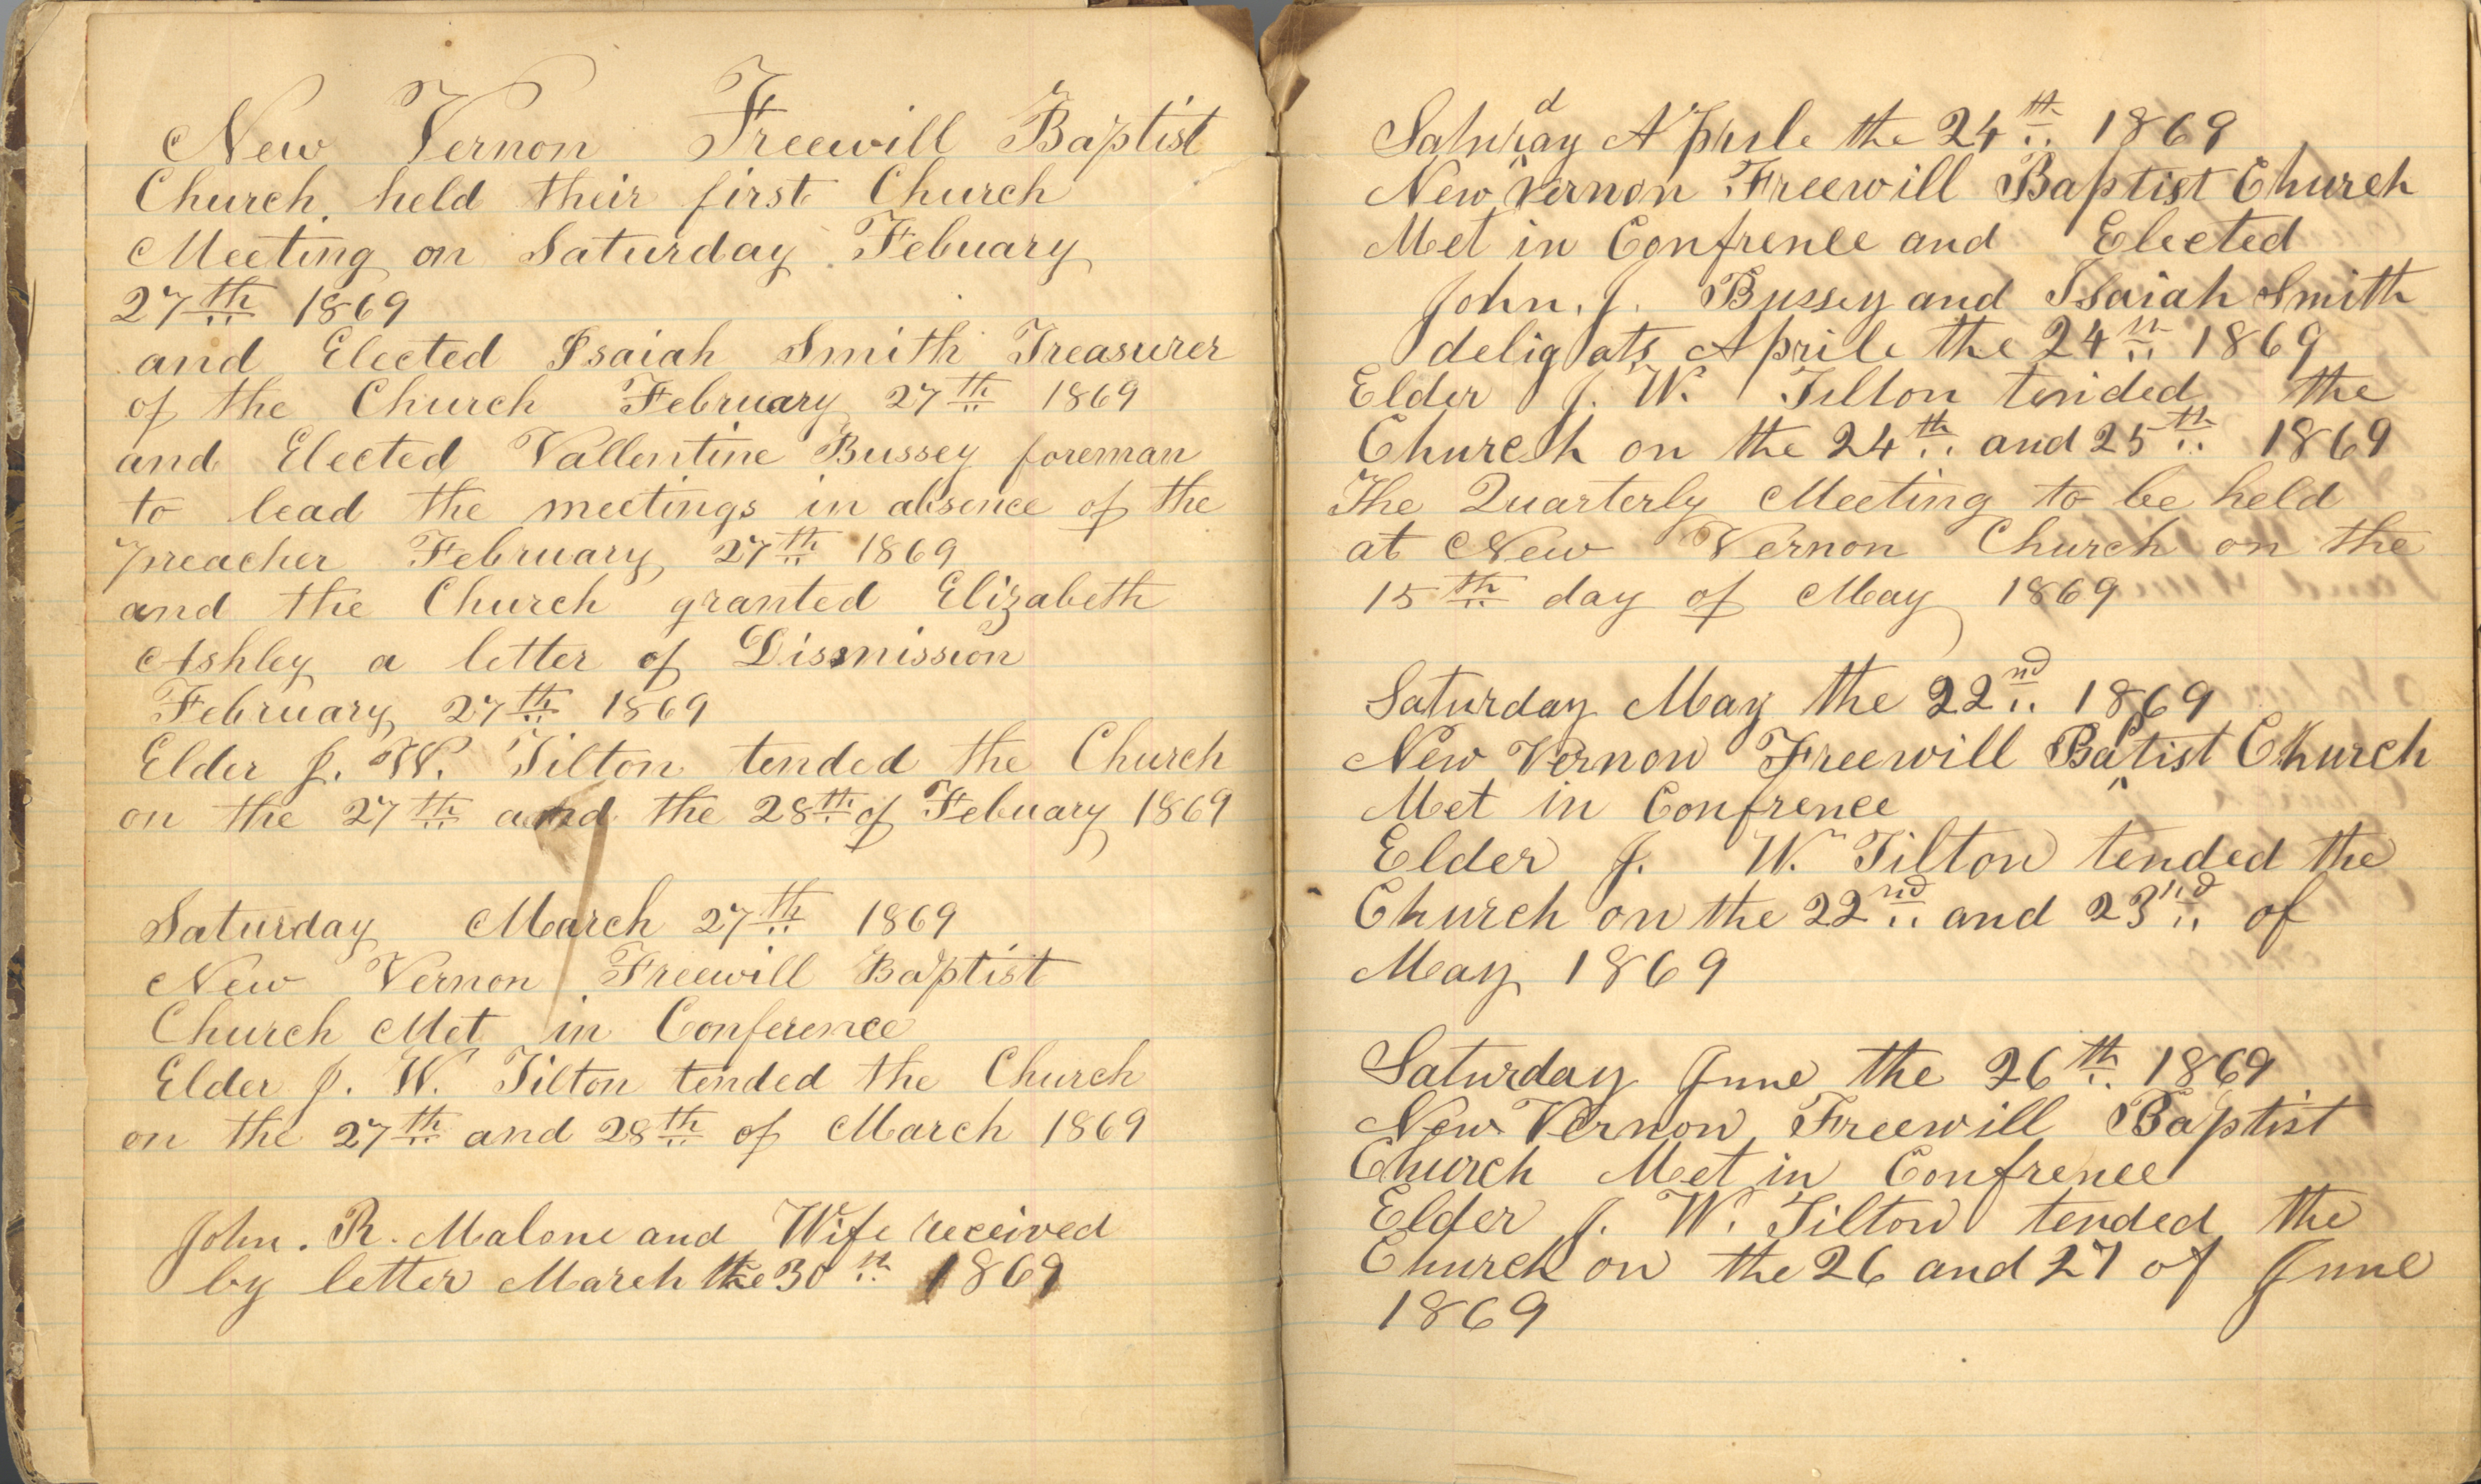 New Vernon Freewill Baptist
Church. held their first Church
Meeting on Saturday Febuary
27th 1869
and Elected Isaiah Smith Treasurer
of the Church February 27th 1869
and Elected Vallentine Bussey foreman
to lead the meetings in absence of the
preacher February 27th 1869
and the Church granted Elizabeth
Ashley a letter of Dissmission
February 27th 1869
Elder J. W. Tilton tended the Church
on the 27th and the 28th of Febuary 1869
Saturday March 27th 1869
New Vernon Freewill Baptist
Church Met in Conference
Elder J. W. Tilton tended the Church
on the 27th and 28th of March 1869
John. R. Malone and Wife received
by letter March the 30th 1869
Saturday Aprile the 24th 1869
New Vernon Freewill Baptist Church
Met in Confrence and Elected
John. J. Bussey and Isaiah Smith
deligats Aprile the 24th 1869
Elder J. W. Tilton tended the
Church on the 24th and 25th 1869
The Quarterly Meeting to be held
at New Vernon Church on the
15th day of May 1869
Saturday May the 22nd 1869
New Vernon Freewill Baptist Church
Met in Confrence
Elder J. W. Tilton tended the
Church on the 22nd and 23nd of
May 1869
Saturday June the 26th 1869
New Vernon Freewill Baptist
Church Met in Confrence
Elder J. W. Tilton tended the
Church on the 26 and 27 of June
1869